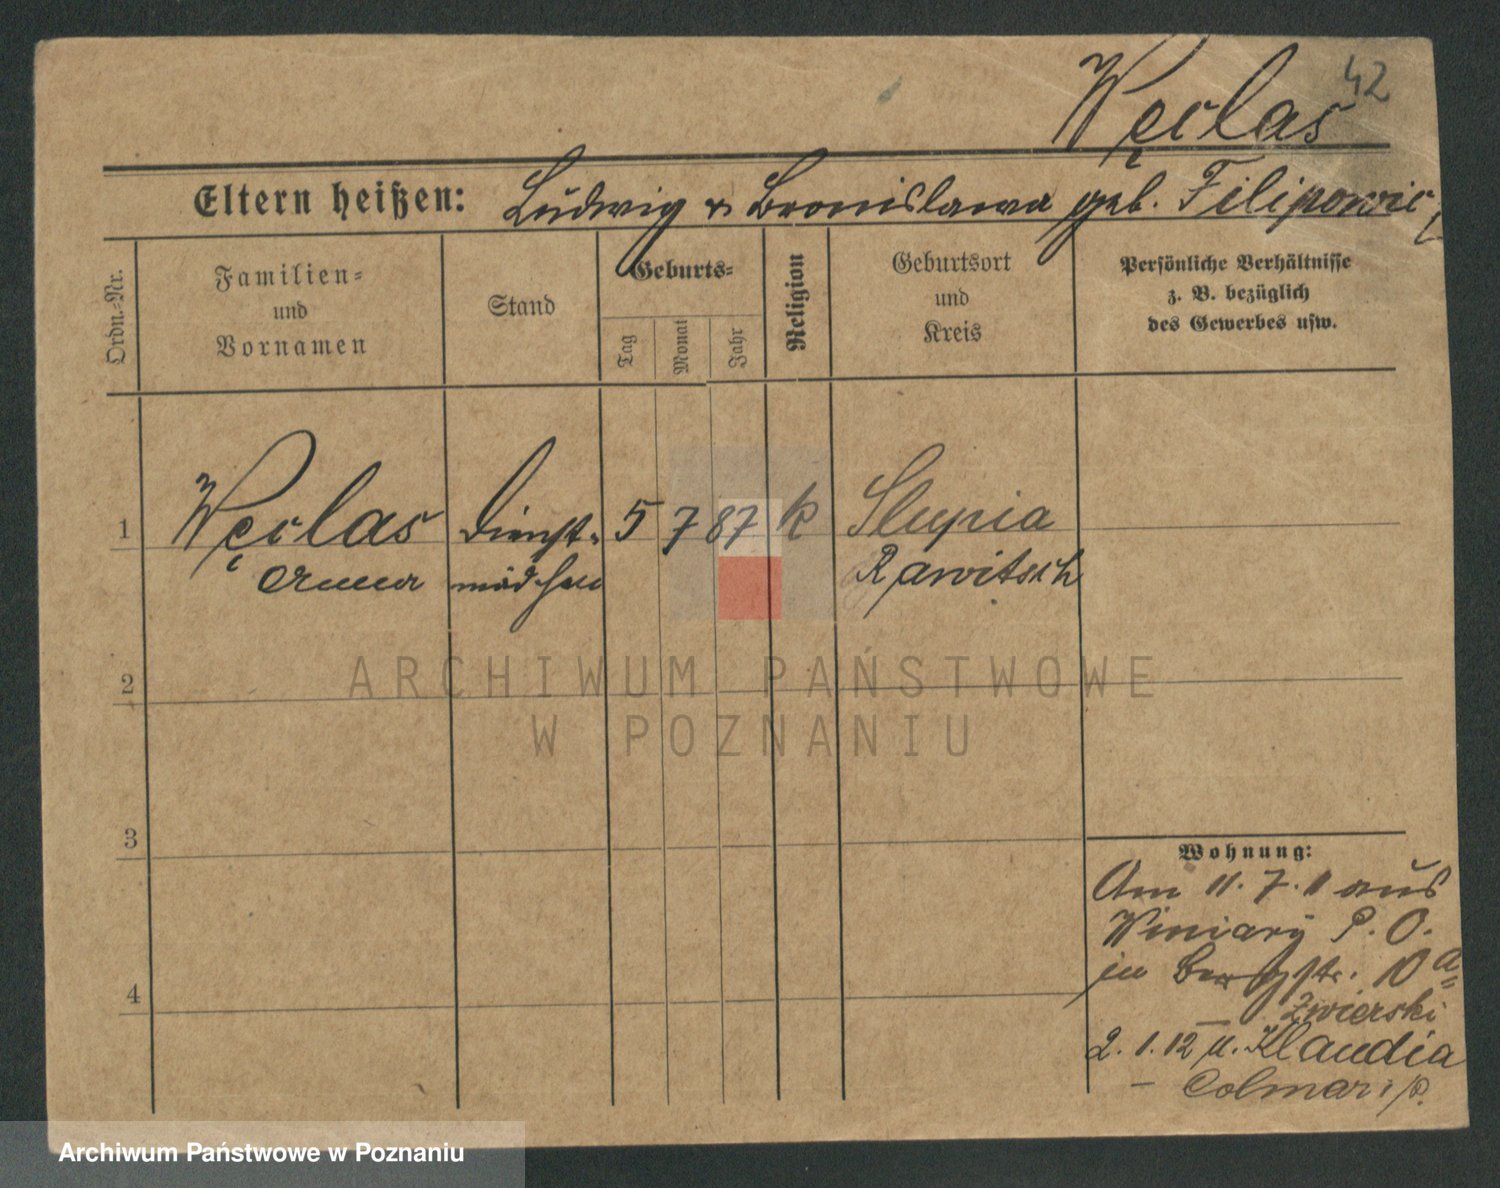 42
Węclas
Eltern heißen: Ludwig & Bronislawa geb. Filipowic
Ordn.-Nr.
Familien-
und
Vornamen
Stand
Geburts-
Tag
Monat
Jahr
Religion
Geburtsort
und
Kreis
Persönliche Verhältnisse
z. B. bezüglich
des Gewerbes usw.
1 Węclas Dienst- 5 7 87 k Slupia
Anna mädchen Rawitsch
2
3
4
Wohnung:
Am 11. 7. 11 aus
Winiary P. O.
in Bergstr. 10a
Zwierski
2. 1. 12 n. Klaudia
Colmar i/P.
ARCHIWUM PAŃSTWOWE
W POZNANIU
Archiwum Państwowe w Poznaniu